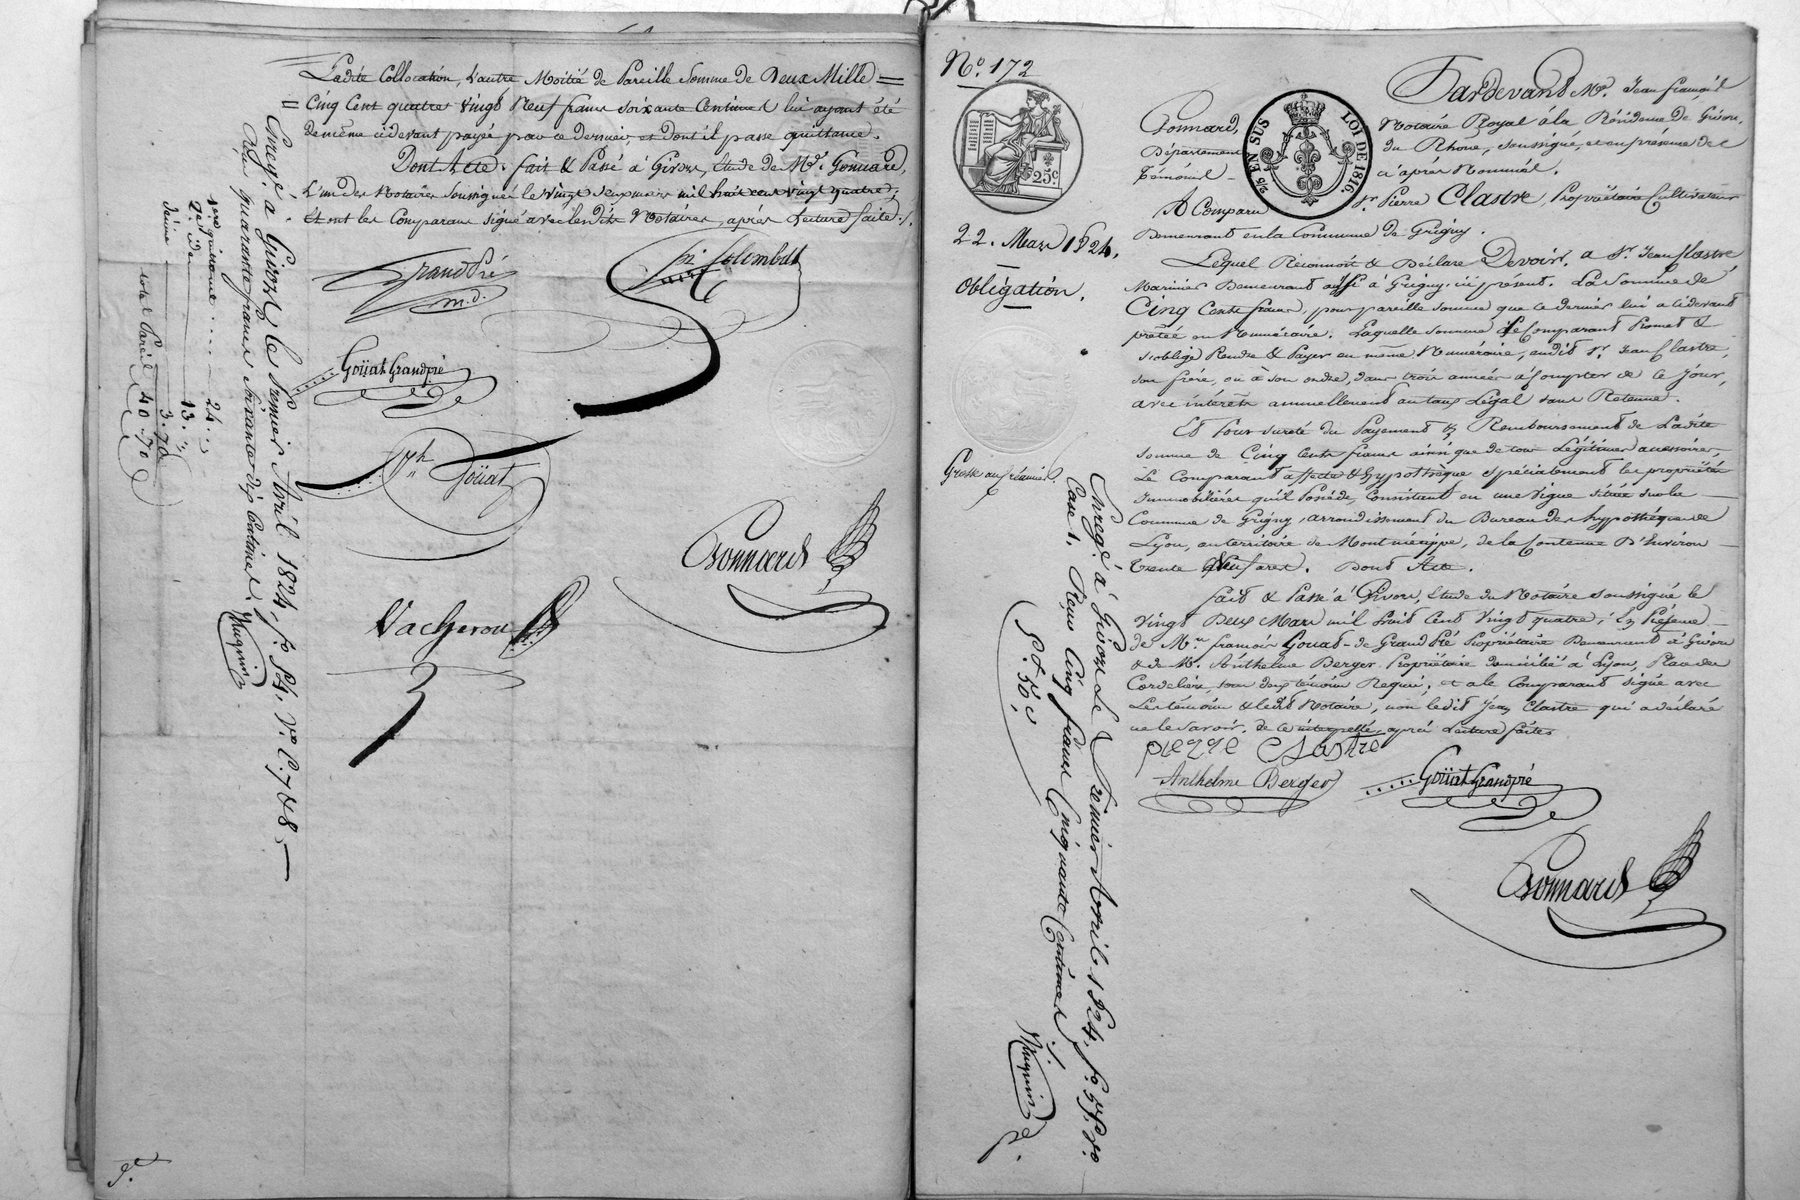 Ladite Collocation, L'autre Moitié de Pareille Somme de Deux Mille
Cinq Cent quatre vingt Neuf francs soixante Centimes lui ayant été
de même cidevant payée par ce dernier, et dont il passe quittance.
Dont Acte. fait & Passé à Givors, Etude de Me. Gonnard,
L'un des Notaires Soussignés le vingt deux mars mil huit cent vingt quatre;
Et ont les Comparans signé avec lesdits Notaires, après Lecture faite./.
GrandPré
m.d.
Colombet
Goüat Grandpré
Goüat
Gonnard
Vacheron
Enregé. à Givors le Premier Avril 1824, fo. 54, Vo. C. 7 & 8.
Reçu quarante francs soixante dix Centimes.
Muguin
24
13
Dixième 3.70
40.70
No. 172
22. Mars 1824.
Obligation.
25 c
5/5 EN SUS
LOI DE 1816.
Pardevant Me. Jean François
Gonnard, Notaire Royal à la Résidence De Givors,
Département du Rhone, soussigné, et en présence des
témoins ci après Nommés.
A Comparu Sr. Pierre Clastre, Propriétaire Cultivateur
Demeurant en la Commune de Grigny.
Lequel Reconnoit & Déclare Devoir, a Sr. Jean Clastre,
Marinier Demeurant aussi à Grigny, ici présent. La Somme de
Cinq Cents francs, pour pareille somme que ce dernier lui a cidevant
prêtée en Numéraire. Laquelle somme le Comparant Promet &
s'oblige Rendre & Payer en même Numéraire, audit Sr. Jean Clastre,
son frère, ou à son ordre, dans trois années à Compter de ce Jour,
avec intérêts annuellement au taux Légal sans Retenue.
Et Pour sureté du Payement & Remboursement de Ladite
somme de Cinq Cents francs ainsi que de tous Légitimes accessoires,
Le Comparant affecte & hypothèque spécialement les propriétés
Immobilières qu'il Possède, Consistant en une Vigne située sur la
Commune de Grigny, arrondissement du Bureau des hypothèques de
Lyon, au territoire de, de la Contenue D'Environ
trente Neuf ares. Dont Acte.
fait & Passé à Givors, Etude du Notaire soussigné le
Vingt Deux Mars mil huit Cent Vingt quatre; En Présence
de Mr. françois Gouat-de GrandPré Propriétaire Demeurant à Givors
& de Mr. Anthelme Berger Propriétaire domicilié à Lyon, Place des
Cordeliers, tous deux témoins Requis; et a le Comparant signé avec
Les témoins & ledit Notaire, non ledit Jean Clastre qui a déclaré
ne le Savoir, de ce interpellé, après Lecture faite.
pierre clastre
Anthelme Berger
Goüat Grandpré
Gonnard
Enregé. à Givors Le Premier Avril 1824, fo. 55, Vo.
Case 1. Reçu Cinq francs Cinquante Centimes./.
5 f 50 c
Muguin